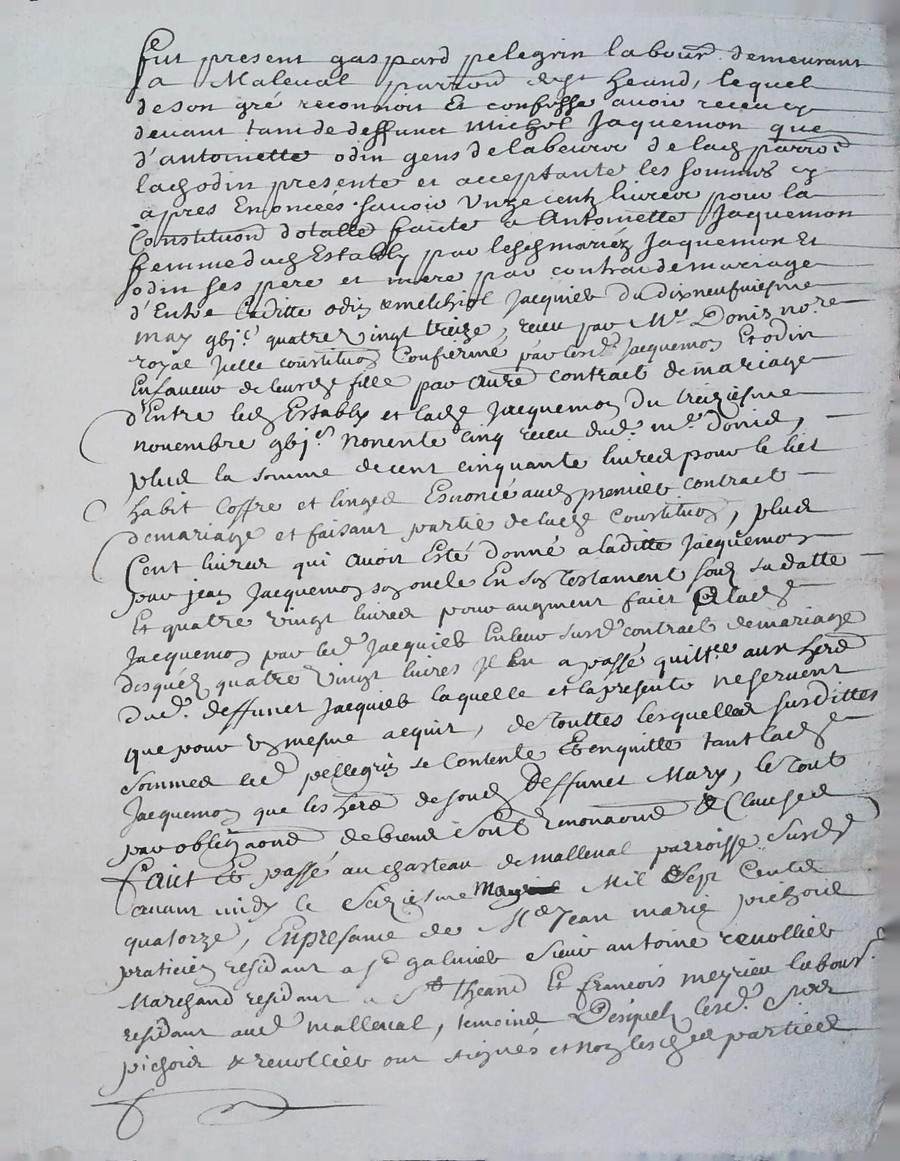 fut present gaspard pelegrin labour. demeurant
a Maleval parroisse de st heand, lequel
de son gré reconnoit Et confesse avoir receu cy
devant tant de deffunct Michel Jaquemon que
d'antoinette odin gens de labeur de lad parroi
lad odin presente et acceptante les sommes cy
apres Enoncées savoir Unze cent livres pour la
Constitution dotalle faite a Antoinette Jaquemon
femme dud Estably par lesd mariez Jaquemon Et
odin ses pere et mere par contrat de mariage
d'Entre laditte odin & melchiol Jacquieb du dixneufviesme
may gbj.c quatre vingt treize, receu par Me Donis no.re
royal Icelle constitution Confirmé par lesd Jacquemon Et odin
En faveur de leurd fille par autre contract de mariage
d'Entre led Estably et lad Jacquemon du treiziesme
novembre gbj.c nonente cinq receu dud. me. Donis,
plus la somme de cent cinquante livres pour le lict
habit Coffre et linges Esnoncé aud premier contract
de mariage et faisant partie de lad Constitution, plus
Cent livres qui avoit Esté donné a laditte Jacquemon
par jean Jacquemon son oncle En son testament soub sa datte
Et quatre vingt livres pour augment fait a lad
Jacquemon par led Jacquieb En leur susd contract de mariage
desquels quatre vingt livres Il En a passé quitt.ce aux herd
dud. deffunct Jacquieb laquelle et la presente ne servent
que pour un mesme acquit, de touttes lesquelles susdittes
sommes led pellegrin se contente Et en quitte tant lad
Jacquemon que les herd de sond deffunct Mary, le tout
par obligaons de biens soub renonaons & Clauses
faict Et passé au chasteau de malleval parroisse susd
avant midy le Seziesme May Mil Sept Cents
quatorze, En presance de Me Jean marie pichois
praticien residant a st galmier sieur antoine revollieb
Marchand residant a st heand Et françois meyrieu labour.
residant aud malleval, temoins Desquels lesd. srs
pichois & revollieb ont signés et non lesd parties